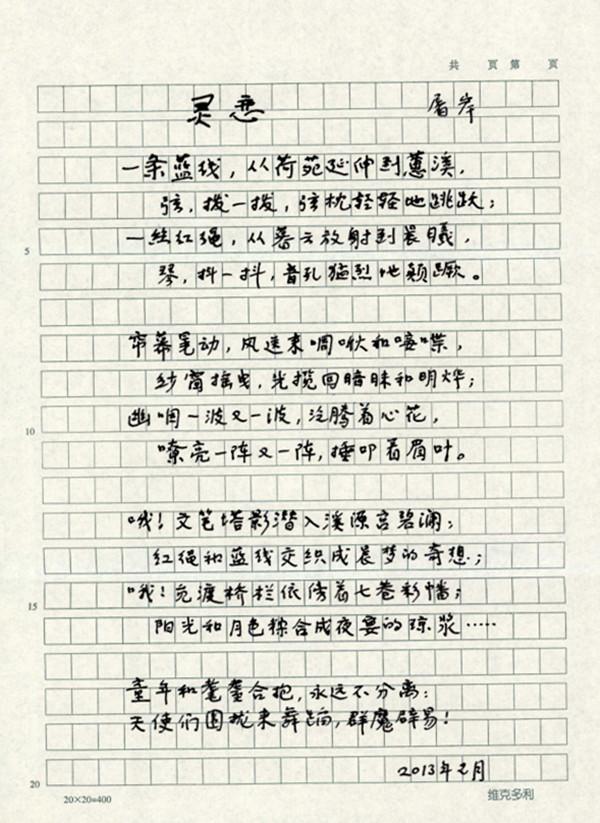 共 页 第 页
灵恋 屠岸
一条蓝线，从荷苑延伸到蕙溪，
弦，拨一拨，弦枕轻轻地跳跃；
5
一丝红绳，从暮云放射到晨曦，
琴，抖一抖，音孔猛烈地颠蹶。
帘幕笔动，风送来啁啾和喋，
纱窗摇曳，光揽回暗昧和明烨；
幽咽一波又一波，沸腾着心花，
10
嘹亮一阵又一阵，捶叩着眉叶。
哦！文笔塔影潜入溪源宫碧澜；
红绳和蓝线交织成晨梦的奇想；
哦！觅渡桥栏依傍着七卷彩幡；
15
阳光和月色综合成夜宴的琼浆……
童年和耄耋合抱，永远不分离：
天使们围拢来舞蹈，群魔辟易！
2013年元月
20
20×20=400 维克多利